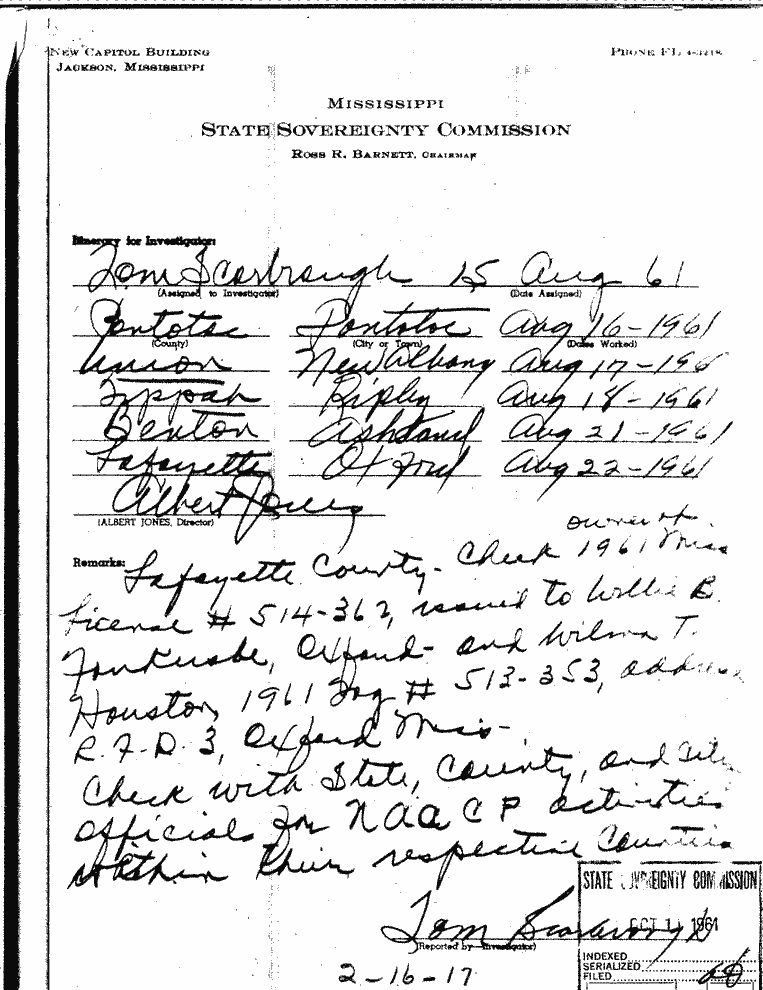 NEW CAPITOL BUILDING
JACKSON, MISSISSIPPI
PHONE FL 4-3218
MISSISSIPPI
STATE SOVEREIGNTY COMMISSION
ROSS R. BARNETT, CHAIRMAN
Itinerary for Investigator:
Tom Scarbrough 15 Aug 61
(Assigned to Investigator) (Date Assigned)
Pontotoc Pontotoc Aug 16-1961
(County) (City or Town) (Dates Worked)
Union New Albany Aug 17-196
Tippah Ripley Aug 18-1961
Benton Ashland Aug 21-1961
Lafayette Oxford Aug 22-1961
Albert Jones
(ALBERT JONES, Director)
owner of
Remarks: Lafayette County- Check 1961 Miss
License # 514-362, issued to Willie B.
Oxford- and Wilma T.
Houston, 1961 Tag # 513-353, address
R.F.D. 3, Oxford Miss-
Check with State, County, and City
officials for NAACP activities
within their respective Counties
Tom Scarbrough
(Reported by Investigator)
2-16-17
STATE SOVEREIGNTY COMMISSION
OCT 11 1961
INDEXED
SERIALIZED
FILED